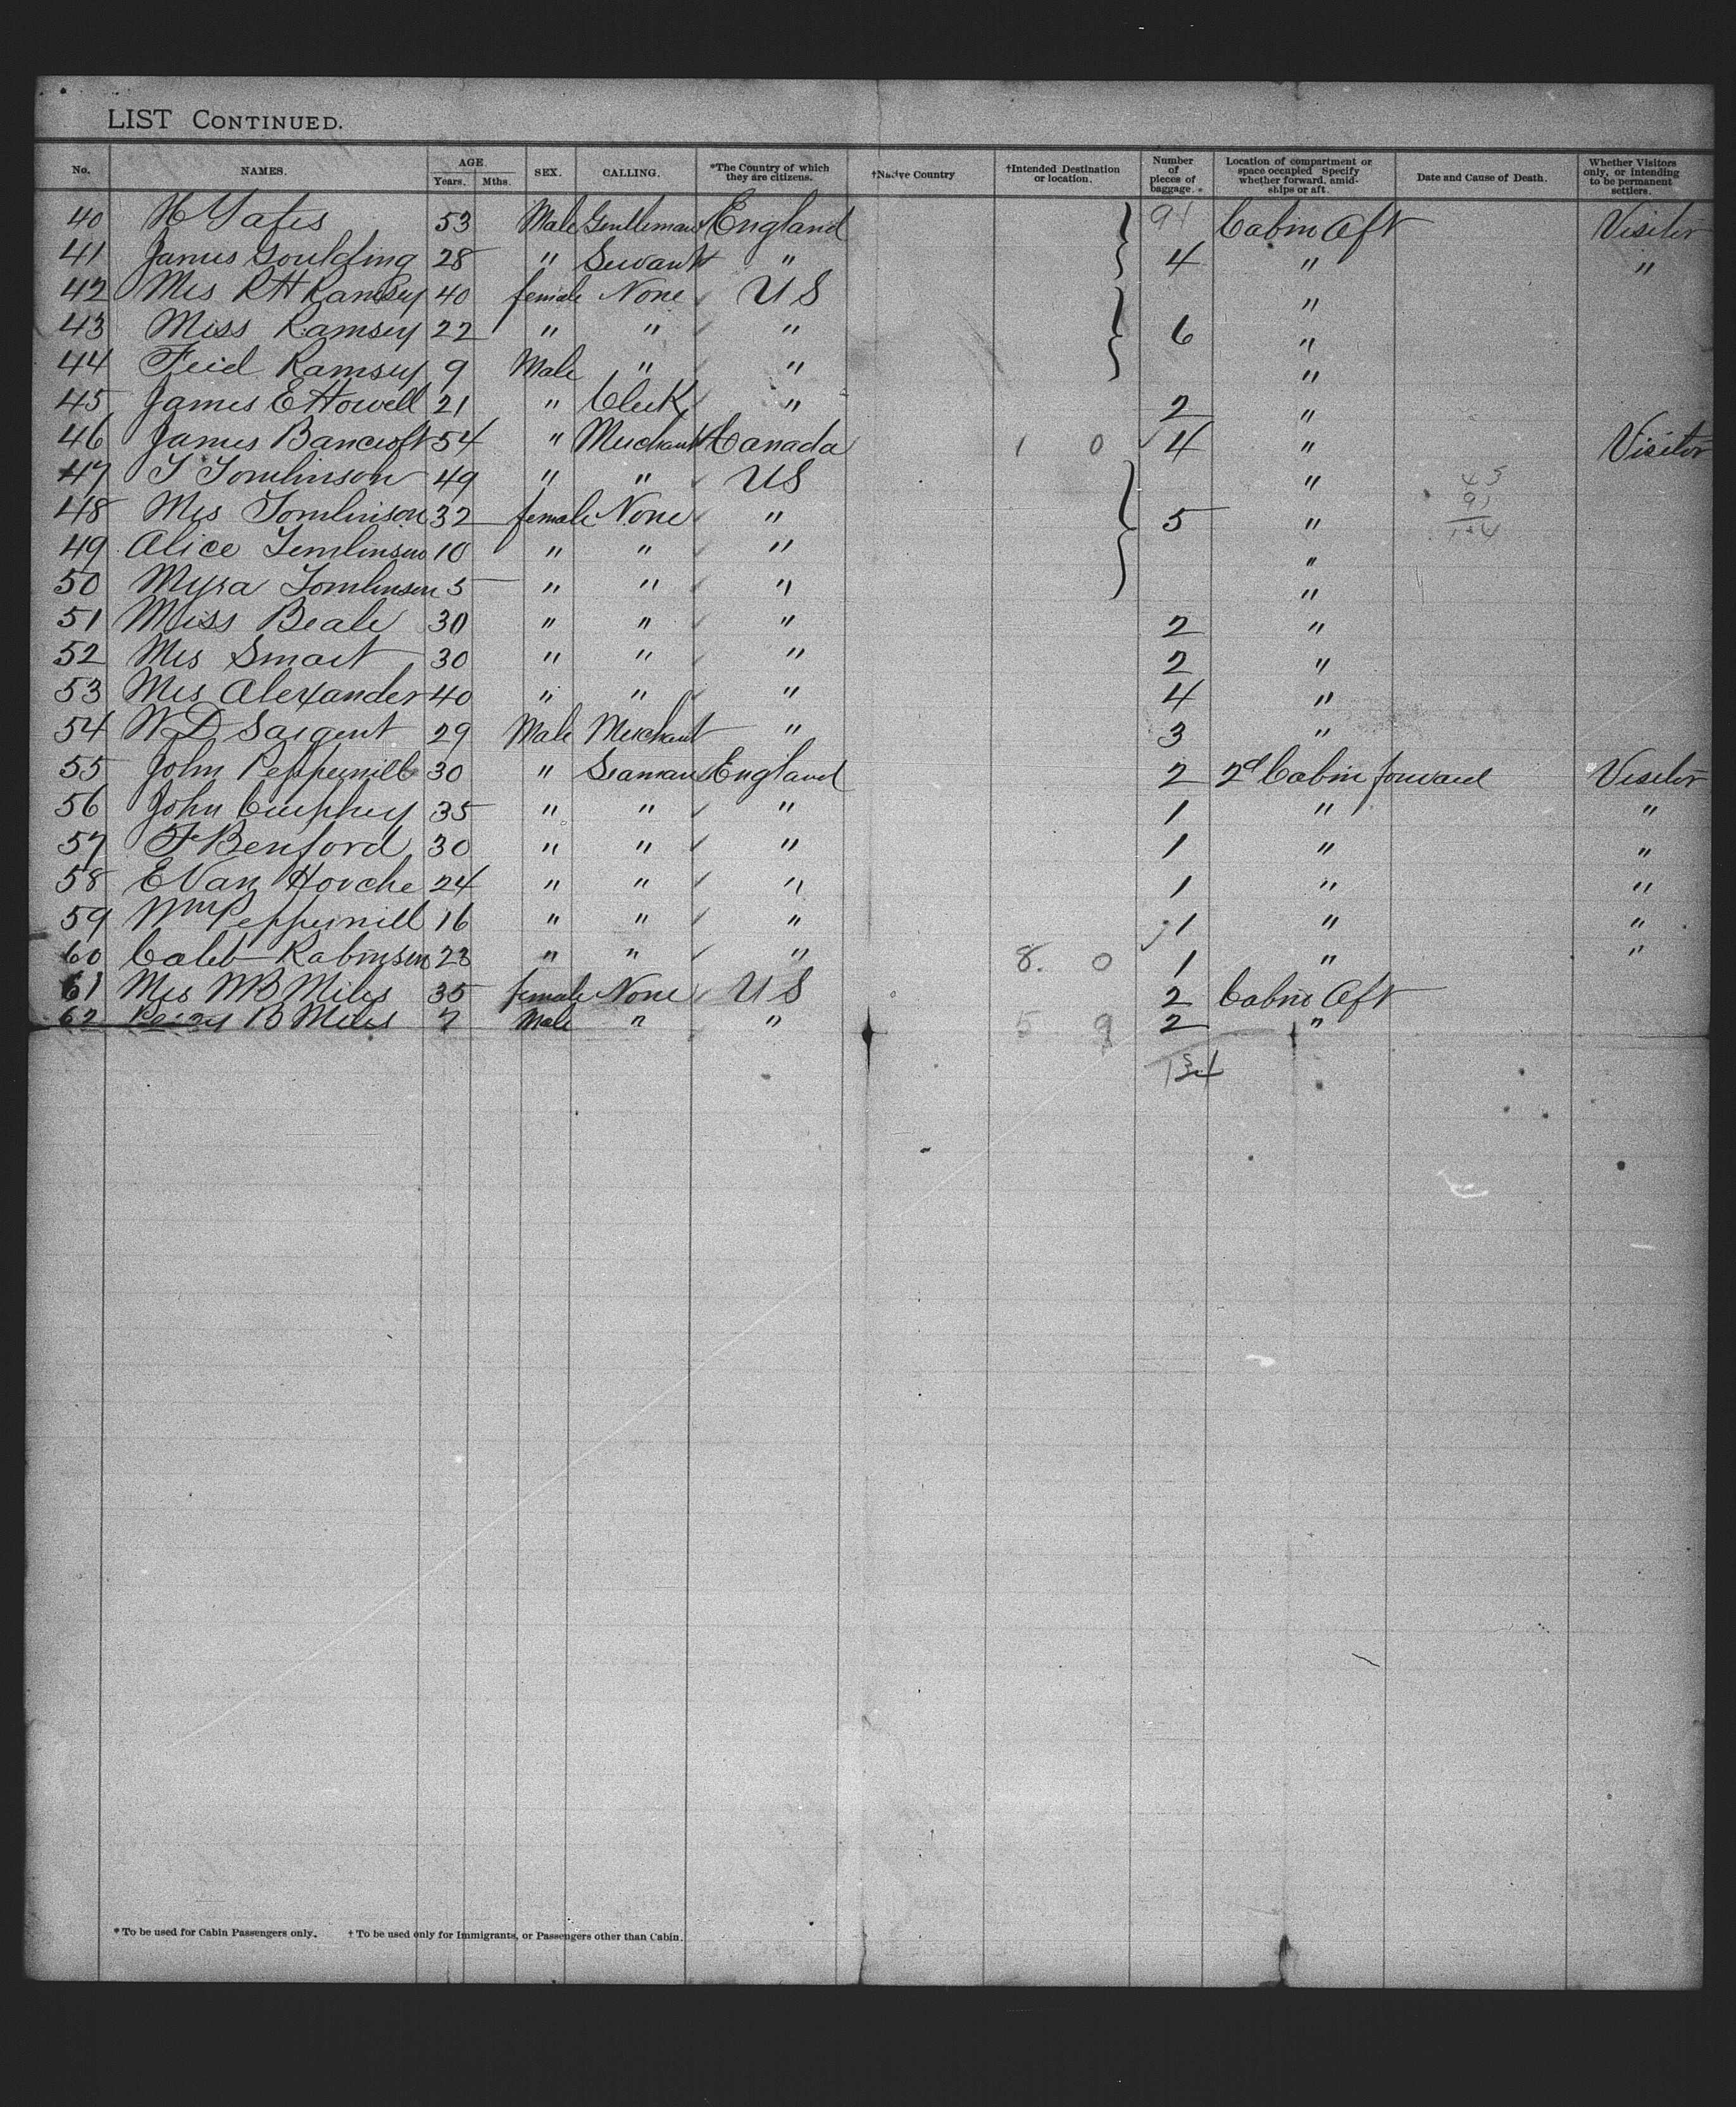 LIST CONTINUED.
No. NAMES. AGE. Years. Mths. SEX. CALLING. *The Country of which they are citizens. †Native Country †Intended Destination or location. Number of pieces of baggage. Location of compartment or space occupied Specify whether forward, amidships or aft. Date and Cause of Death. Whether Visitors only, or intending to be permanent settlers.
40 H Yates 53 Male Gentleman England 91 Cabin Aft Visitor
41 James Goulding 28 " Servant " 4 " "
42 Mrs R H Ramsey 40 female None U S "
43 Miss Ramsey 22 " " " 6 "
44 Fred Ramsey 9 Male " " "
45 James E Howell 21 " Clerk " 2 "
46 James Bancroft 54 " Merchant Canada 1 0 4 " Visitor
47 T Tomlinson 49 " " U S "
48 Mrs Tomlinson 32 female None " 5 "
49 Alice Tomlinson 10 " " " "
50 Myra Tomlinson 5 " " " "
51 Miss Beale 30 " " " 2 "
52 Mrs Smart 30 " " " 2 "
53 Mrs Alexander 40 " " " 4 "
54 W D Sargent 29 Male Merchant " 3 "
55 John Peppernill 30 " Seaman England 2 2d Cabin forward Visitor
56 John Cumphey 35 " " " 1 " "
57 F Benford 30 " " " 1 " "
58 E Van Horche 24 " " " 1 " "
59 Wm Peppernill 16 " " " 1 " "
60 Caleb Robinson 23 " " " 8. 0 1 " "
61 Mrs W B Miles 35 female None U S 2 Cabin Aft
62 Percy B Miles 7 Male " " 5 9 2 "
*To be used for Cabin Passengers only. †To be used only for Immigrants, or Passengers other than Cabin.